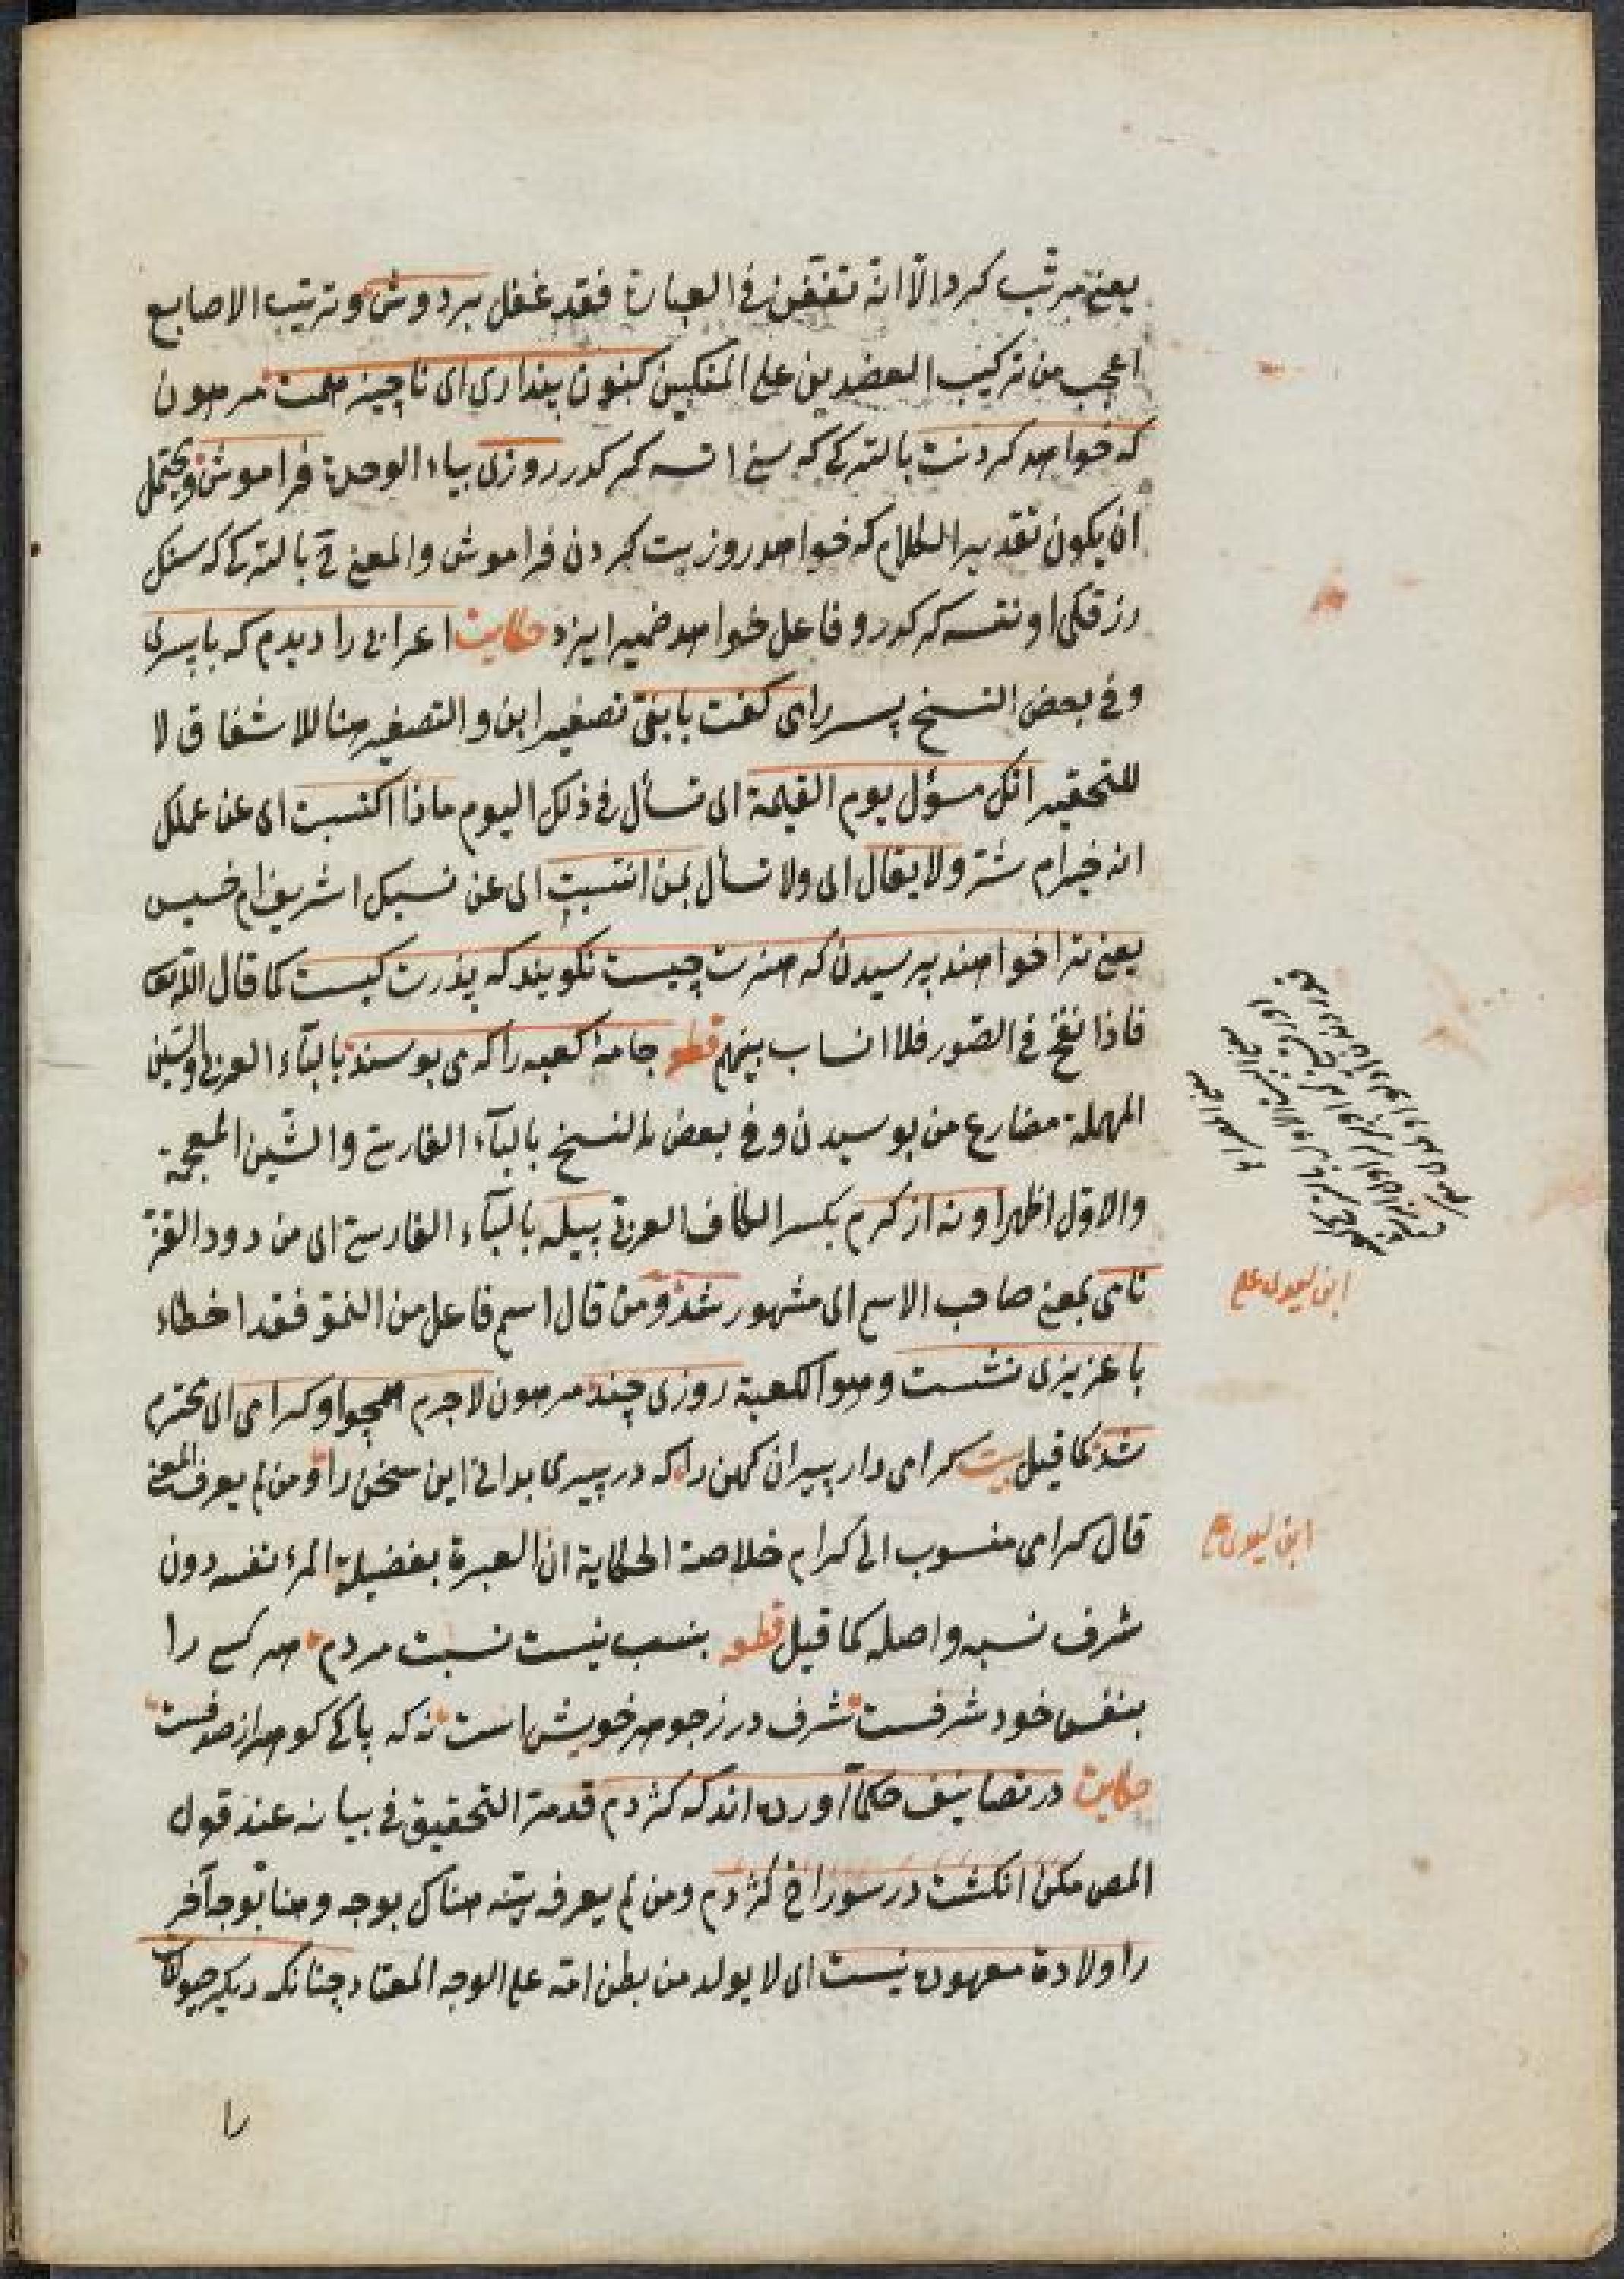 يعنى مرتب كرد الّا انّه تفنّن فى العبارة فقد غفل بر دوش وترتيب الاصابع
اعجب من تركيب العضدين على المنكبين كنون پندارى اى ناچيز همت مرهون
كه خواهد كردنت بالتركى كه سنى اتسه كركدر روزى بياء الوحدة فراموش ويحتمل
ان يكون تقدير الكلام كه خواهد روزيت كردن فراموش والمعنى بالتركى كه سنك
رزقكى اونتسه كركدر وفاعل خواهد ضمير ايزد حكايت اعرابى را ديدم كه با پسرى
وفى بعض النسخ پسر را مى كفت يا بنىّ تصغير ابن والتصغير هنا للاشفاق لا
للتحقير انك مسؤل يوم القيمة اى تسأل فى ذلك اليوم ماذا اكتسبت اى عن عملك
انه خير ام شرّ ولا يقال اى ولا تسأل بمن انتسبت اى عن نسبك اشريف ام خسيس
يعنى ترا خواهند پرسيدن كه هنرت چيست نكويند كه پدرت كيست كما قال اللّه تعا
فاذا نفخ فى الصّور فلا انساب بينهم قطعه جامهٔ كعبه را كه مى بوسند بالبآء العربى والسّين
المهملة مضارع من بوسيدن وفى بعض النسخ بالبآء الفارسىّ والشّين المعجمة
والاوّل اظهر او نه از كرم بكسر الكاف العربىّ پيله بالبآء الفارسىّ اى من دود القزّ
نامى بمعنى صاحب الاسم اى مشهور شد ومن قال اسم فاعل من النموّ فقد اخطاء
با عزيزى نشست وهو الكعبة روزى چند مرهون لاجرم همچو او كرامى اى محترم
شد كما قيل بيت كرامى دار پيران كهن را كه در پيرى بدانى اين سخن را ومن لم يعرف المعنى
قال كرامى منسوب الى كرام خلاصة الحكاية ان العبرة بفضيلة المرء نفسه دون
شرف نسبه واصله كما قيل قطعه بنسب نيست نسبت مردم هر كسى را
بنفس خود شرفست شرف در ز جوهر خويش است نه كه پاكى كوهر از صدفست
حكايت در تصانيف حكما آورده اند كه كژدم قد مرّ التحقيق فى بيانه عند قول
المص مكن انكشت در سوراخ كژدم ومن لم يعرف بيّنه هناك بوجه وهنا بوجه آخر
را ولادة معهود نيست اى لا يولد من بطن امّه على الوجه المعتاد چنانكه ديكر حيوانات
را
ابن
ابن